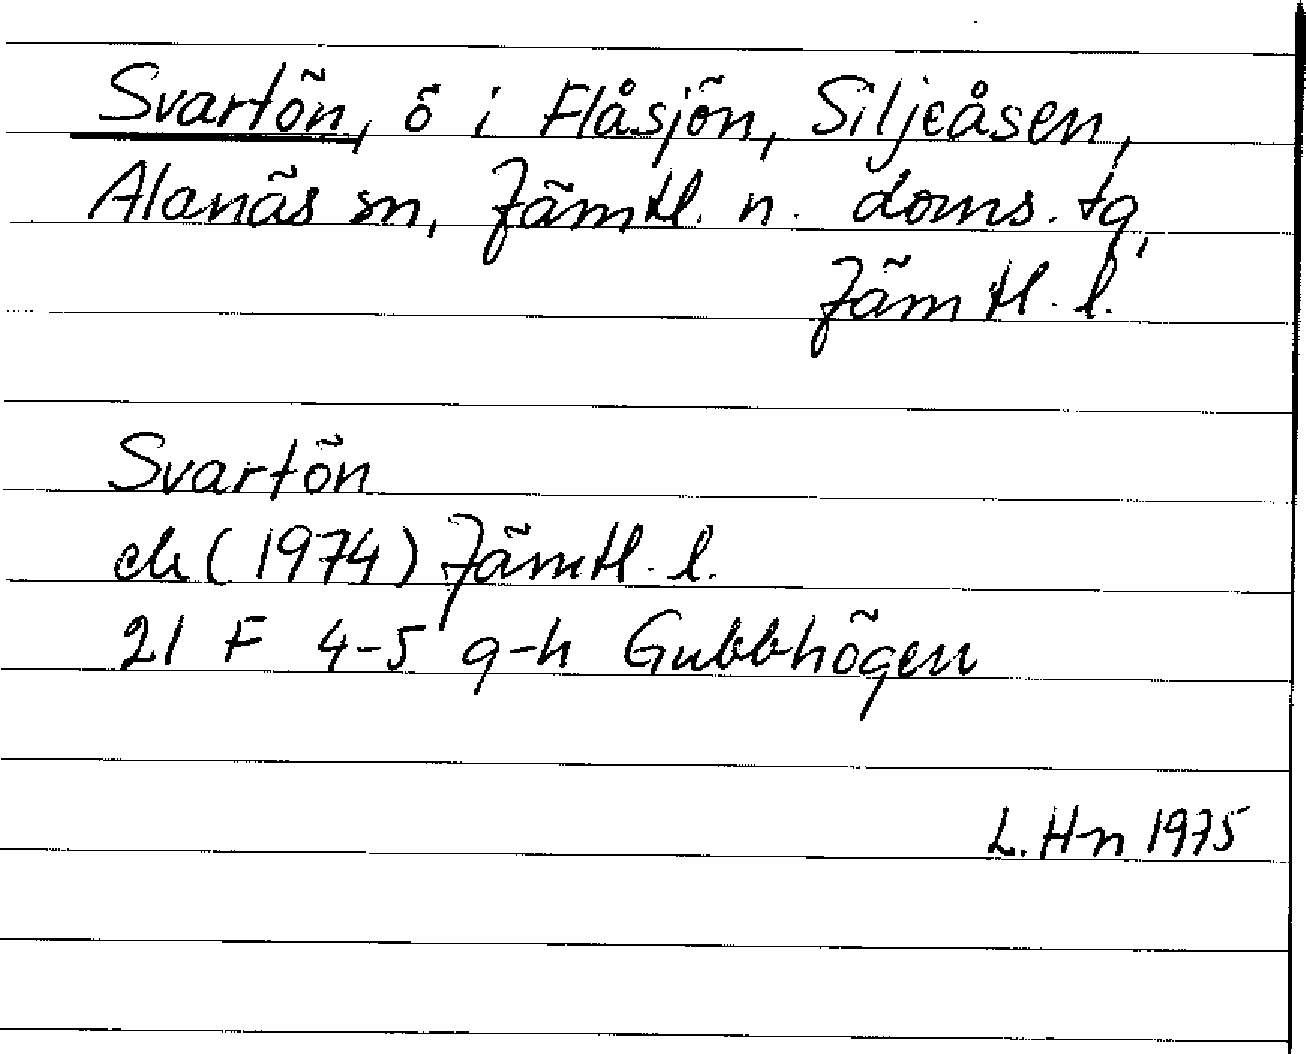 Svartön, ö i Flåsjön, Siljeåsen,
Alanäs sn, Jämtl. n. doms. tg,
Jämtl. l.
Svartön
ek (1974) Jämtl. l.
21 F 4-5 g-h Gubbhögen
L. H-n 1975